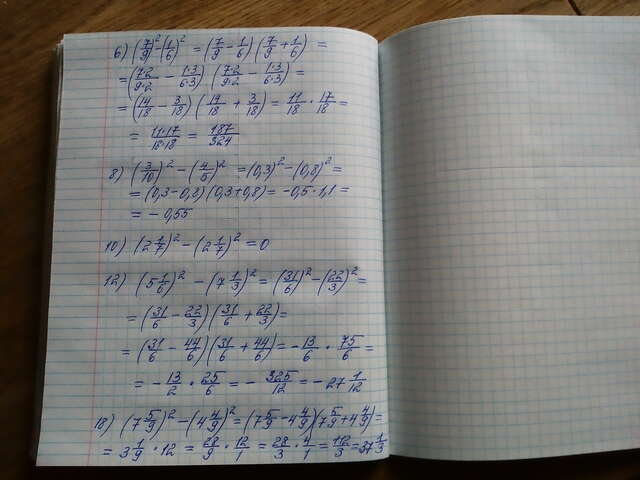 6) (7/9)² - (1/6)² = (7/9 - 1/6) (7/9 + 1/6) =
= (7·2/9·2 - 1·3/6·3) (7·2/9·2 - 1·3/6·3) =
= (14/18 - 3/18) (14/18 + 3/18) = 11/18 · 17/18 =
= 11·17/18·18 = 187/324
8) (3/10)² - (4/5)² = (0,3)² - (0,8)² =
= (0,3-0,8) (0,3+0,8) = -0,5·1,1 =
= -0,55
10) (2 1/7)² - (2 1/7)² = 0
12) (5 1/6)² - (7 1/3)² = (31/6)² - (22/3)² =
= (31/6 - 22/3) (31/6 + 22/3) =
= (31/6 - 44/6) (31/6 + 44/6) = - 13/6 · 75/6 =
= - 13/2 · 25/6 = - 325/12 = - 27 1/12
18) (7 5/9)² - (4 4/9)² = (7 5/9 - 4 4/9) (7 5/9 + 4 4/9) =
= 3 1/9 · 12 = 28/9 · 12/1 = 28/3 · 4/1 = 112/3 = 37 1/3